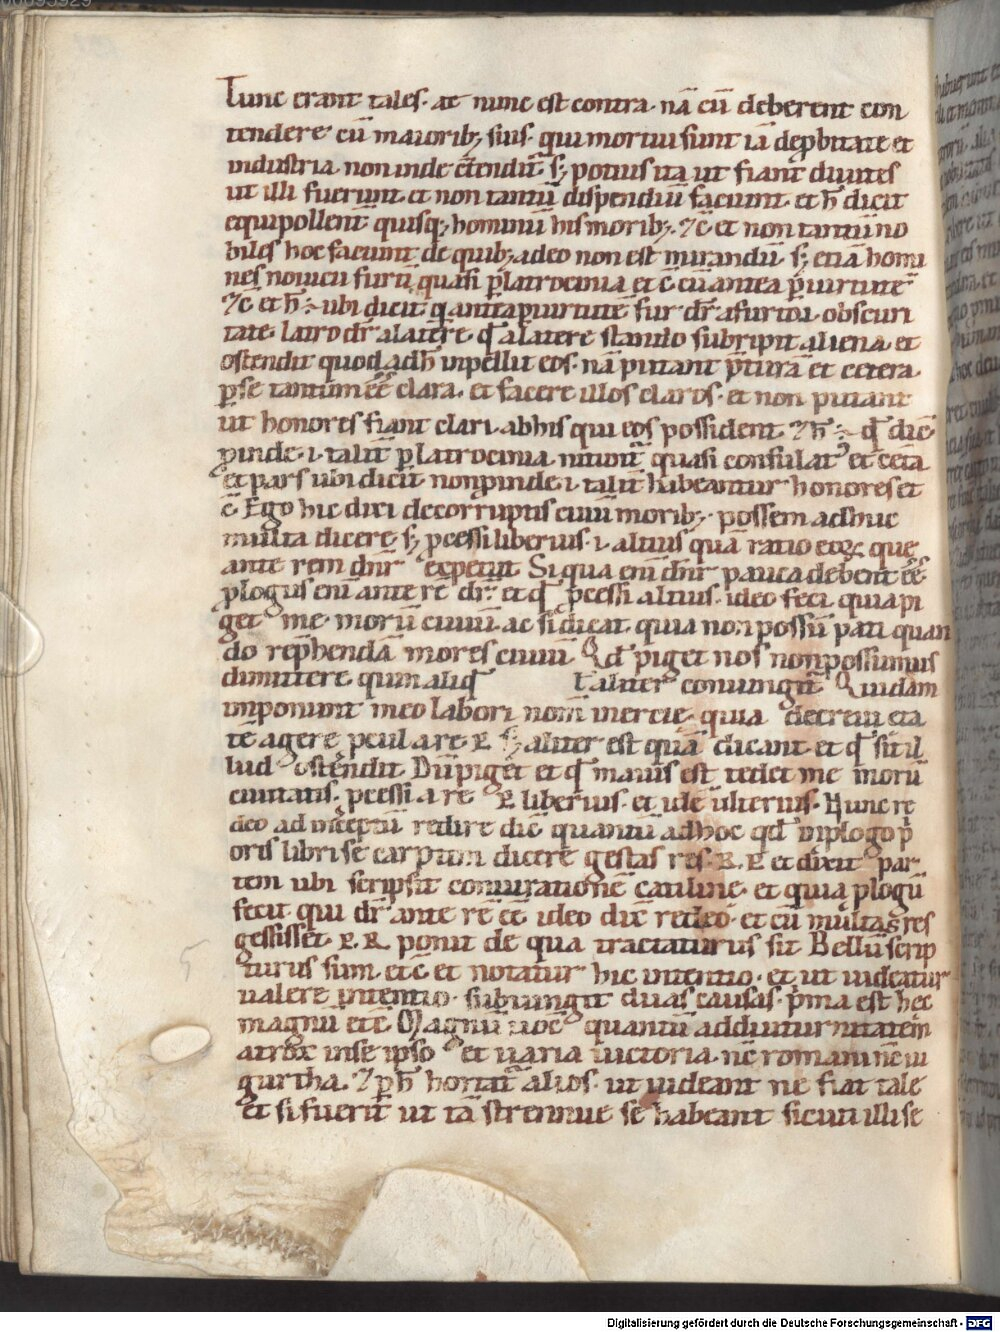 Tunc erant tales. at nunc est contra. nā cū deberent con
tendere cū maiorib; suis. qui mortui sunt iā de p̱bitate et
industria. non inde c̄tendūt. s; potius ita ut fiant diuites
ut illi fuerunt. et non tantū dispendiū faciunt. et h̄ dicit
equipollent̄ quisq; hominū his morib;. ⁊c̄ et non tantū no
biles hoc faciunt de quib; adeo non est mirandū. s; etiā homi
nes nouicu furtī quasi p̱ latrocinia et c̄ cū antea p̱ uirtutē
⁊c̄ et h̄ ÷ ubi dicit q̄ antea p̱ uirtutē fur dr̄ a furtou. obscuri
tate. latro dr̄ a latere q̄ a latere stando subripit aliena. et
ostendit quod ad h̄ inpellit eos. nā putant p̄turā et cetera.
p̱ se tantum eē clara. et facere illos claros. et non putant
ut honores fiant clari. ab his qui eos possident. ⁊ h̄ ÷ q̄ dic̄
p̱inde .i. talit̄ p̱ latrocinia. nitunt̄ quasi consulat᷒ et ceta
et pars ubi dicit non p̱inde .i. talit̄ habeantur honores et
c̄ Ego hic dixi de corruptis ciuiū morib;. possem adhuc
multa dicere. s; p̱cessi liberius .i. altius quā ratio que
ante rem dn̄r expetit Si qua eni dn̄r pauca debent eē.
p̱logus eni ante rē dr̄. et q̄ p̱cessi altius. ideo feci. quia pi
get me morū ciuiū. ac si dicat. quia non possū pati quan
do rep̱hendā mores ciuiū Qd̄ piget nos non possumus
dimittere. quin aliq̄ taliter coniungit̄ Quidam
imponunt meo labori nom̄ inercie. quia decreui eta
tē agere p̱cul a re. P. s; aliter est quā dicant. et q̄ sit il
lud ostendit. Dū piget et q̄ maius est tedet me morū
ciuitatis. p̱cessi a re P. liberius. et ul̄e ulterius. Nunc re
deo ad inceptū redire dic̄ quantū ad hoc qd̄ in p̱logo p̱
oris libri se carptim dicere gestas res. R. P. et dixit par
tem ubi scripsit coniurationē catiline. et quia p̱logū
fecit qui dr̄ ante rē eē ideo dic̄ redeo. et cū multas res
gessisset. P. R. ponit de qua tractaturus sit Bellū scrip
turus sum. et c̄ et notatur hic intentio. et ut uideatur
ualere intentio. subiungit duas causas. p̱ma est hec
magnū et c̄ Magnū uoc̄ quantū ad diuturnitatem
atrox in se ipso et uaria uictoria. nē romani nē iu
gurtha. ⁊ p̱ h̄ hortat̄ alios. ut uideant ne fiat tale
et si fuerit ut tā strennue se habeant sicuti illi se
Digitalisierung gefördert durch die Deutsche Forschungsgemeinschaft - DFG